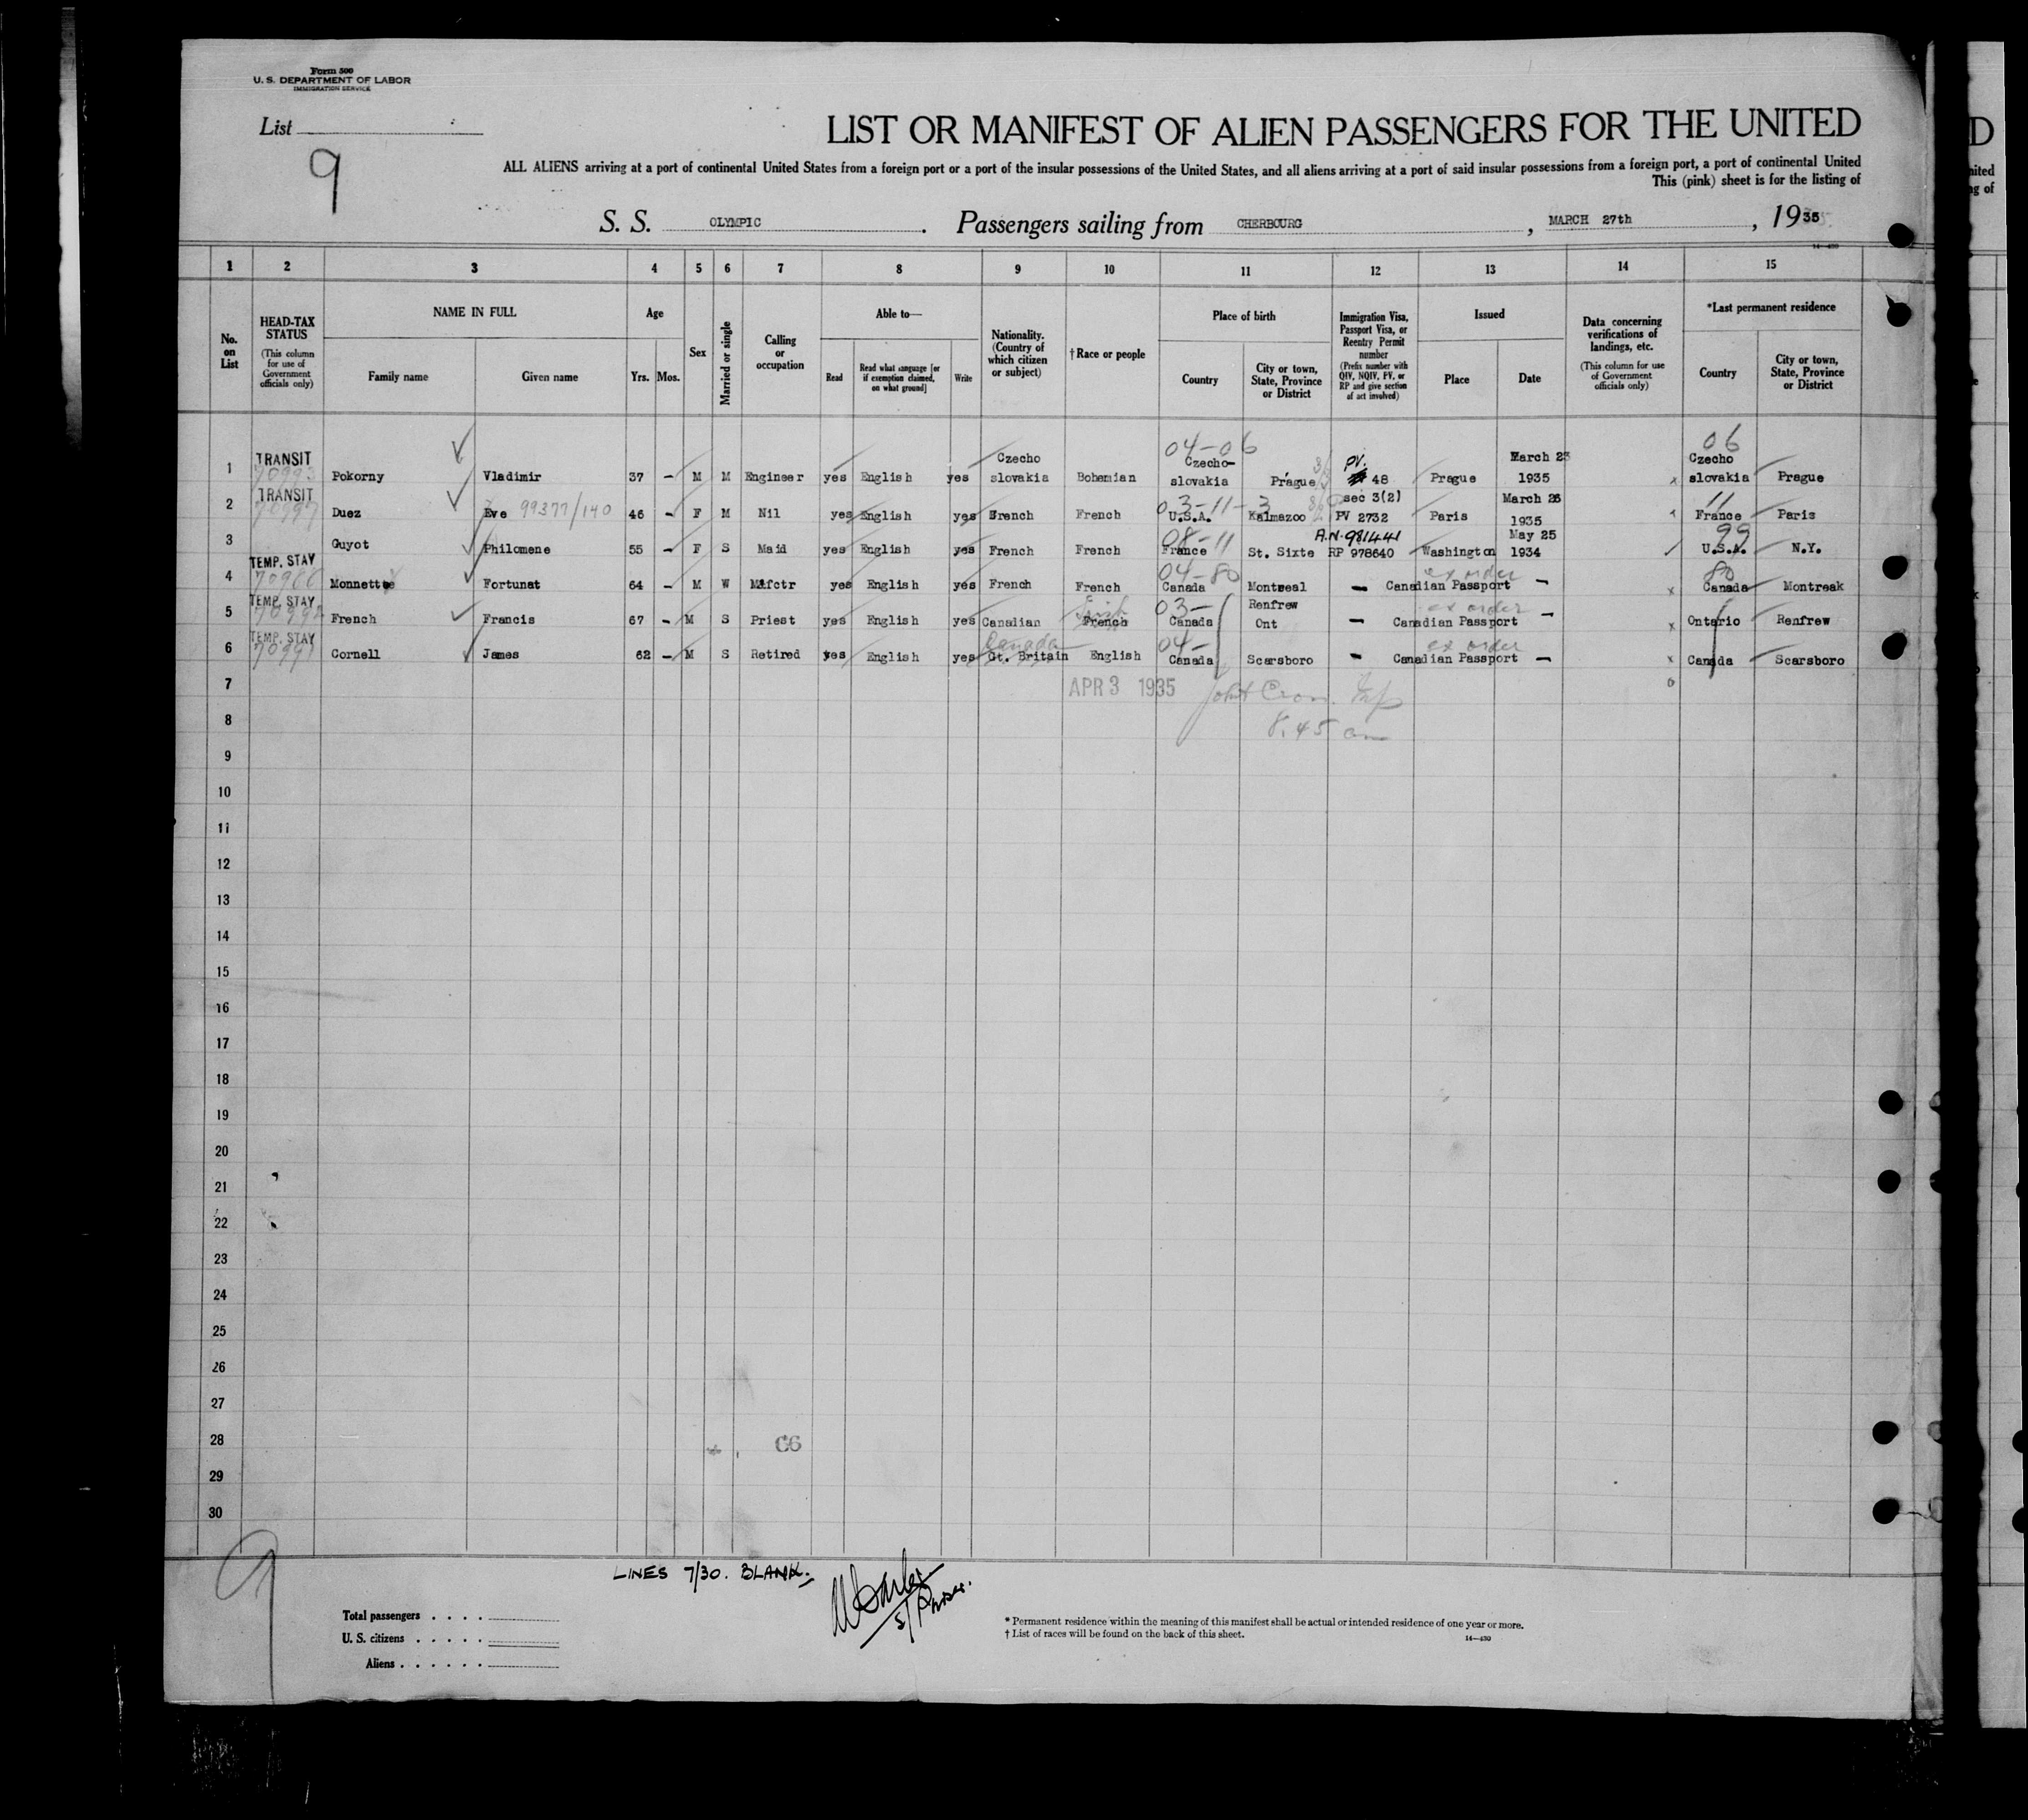 Form 500
U. S. DEPARTMENT OF LABOR
IMMIGRATION SERVICE
List
9
LIST OR MANIFEST OF ALIEN PASSENGERS FOR THE UNITED
ALL ALIENS arriving at a port of continental United States from a foreign port or a port of the insular possessions of the United States, and all aliens arriving at a port of said insular possessions from a foreign port, a port of continental United
This (pink) sheet is for the listing of
S. S. OLYMPIC . Passengers sailing from CHERBOURG , MARCH 27th , 1935
14—430
1 2 3 4 5 6 7 8 9 10 11 12 13 14 15
No. on List
HEAD-TAX STATUS (This column for use of Government officials only)
NAME IN FULL
Family name
Given name
Age
Yrs. Mos.
Sex
Married or single
Calling or occupation
Able to—
Read
Read what language [or if exemption claimed, on what ground]
Write
Nationality. (Country of which citizen or subject)
†Race or people
Place of birth
Country
City or town, State, Province or District
Immigration Visa, Passport Visa, or Reentry Permit number (Prefix number with QIV, NQIV, PV, or RP and give section of act involved)
Issued
Place
Date
Data concerning verifications of landings, etc. (This column for use of Government officials only)
*Last permanent residence
Country
City or town, State, Province or District
04-06 06
1 TRANSIT 70993 Pokorny Vladimir 37 - M M Engineer yes English yes Czecho slovakia Bohemian Czecho- slovakia Prague PV. 48 Prague March 25 1935 x Czecho slovakia Prague
sec 3(2)
03-11-3 11
2 TRANSIT Duez Eve 99377/140 46 - F M Nil yes English yes French French U.S.A. Kalmazoo PV 2732 Paris March 26 1935 x France Paris
08-11 A.N. 981441 99
3 Guyot Philomene 55 - F S Maid yes English yes French French France St. Sixte RP 978640 Washington May 25 1934 U.S.A. N.Y.
04-80 ex order 80
4 TEMP. STAY Monnette Fortunat 64 - M W Mafctr yes English yes French French Canada Montreal - Canadian Passport - x Canada Montreak
Irish 03- ex order
5 TEMP. STAY French Francis 67 - M S Priest yes English yes Canadian French Canada Renfrew Ont - Canadian Passport - x Ontario Renfrew
Canada 04- ex order
6 TEMP. STAY 70991 Cornell James 62 - M S Retired yes English yes Gt. Britain English Canada Scarsboro - Canadian Passport - x Canada Scarsboro
7 APR 3 1935
8 8.45 am
9
10
11
12
13
14
15
16
17
18
19
20
21
22
23
24
25
26
27
28 C6
29
30
9
LINES 7/30. BLANK.
Total passengers . . . .
U. S. citizens . . . . .
Aliens . . . . . .
* Permanent residence within the meaning of this manifest shall be actual or intended residence of one year or more.
† List of races will be found on the back of this sheet.
14—430
D